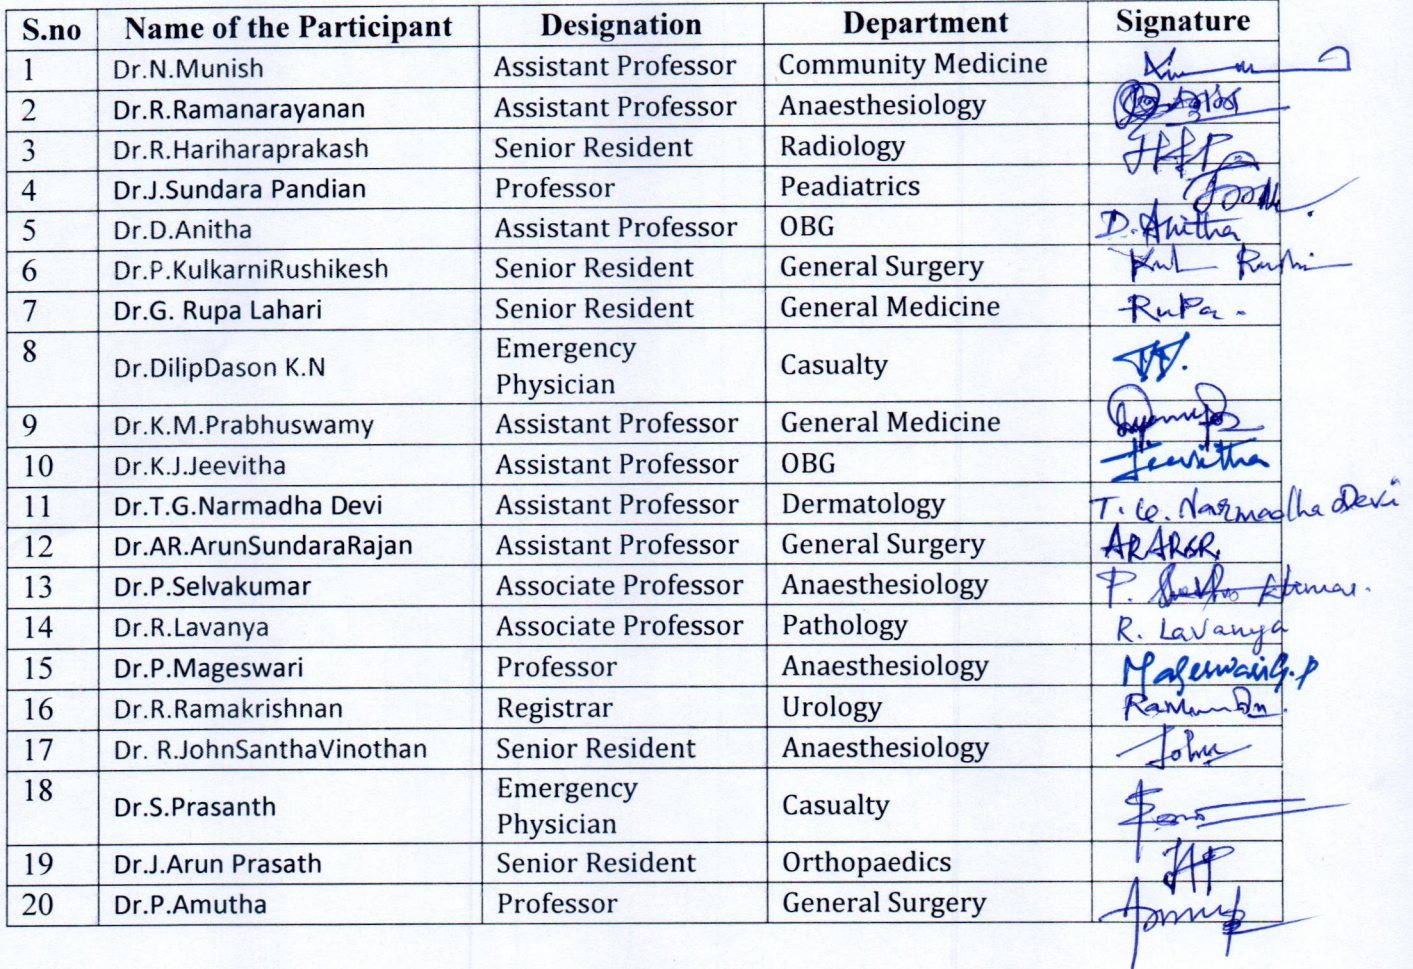 S.no Name of the Participant Designation Department Signature
1 Dr.N.Munish Assistant Professor Community Medicine
2 Dr.R.Ramanarayanan Assistant Professor Anaesthesiology
3 Dr.R.Hariharaprakash Senior Resident Radiology
4 Dr.J.Sundara Pandian Professor Peadiatrics
5 Dr.D.Anitha Assistant Professor OBG D.Anitha
6 Dr.P.KulkarniRushikesh Senior Resident General Surgery
7 Dr.G. Rupa Lahari Senior Resident General Medicine RuPa.
8 Dr.DilipDason K.N Emergency
Physician Casualty
9 Dr.K.M.Prabhuswamy Assistant Professor General Medicine
10 Dr.K.J.Jeevitha Assistant Professor OBG Jeevitha
11 Dr.T.G.Narmadha Devi Assistant Professor Dermatology T.G.Narmadha Devi
12 Dr.AR.ArunSundaraRajan Assistant Professor General Surgery
13 Dr.P.Selvakumar Associate Professor Anaesthesiology P.
14 Dr.R.Lavanya Associate Professor Pathology R. Lavanya
15 Dr.P.Mageswari Professor Anaesthesiology
16 Dr.R.Ramakrishnan Registrar Urology
17 Dr. R.JohnSanthaVinothan Senior Resident Anaesthesiology John
18 Dr.S.Prasanth Emergency
Physician Casualty
19 Dr.J.Arun Prasath Senior Resident Orthopaedics JAP
20 Dr.P.Amutha Professor General Surgery